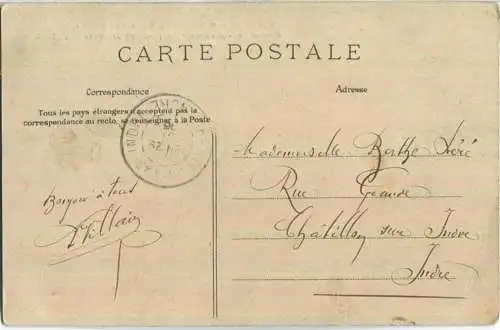 CARTE POSTALE
Correspondance
Adresse
Tous les pays étrangers n'acceptent pas la
correspondance au recto, se renseigner à la Poste.
Mademoiselle Berthe
Rue Grande
Châtillon sur Indre
Indre
Bonjour à tous